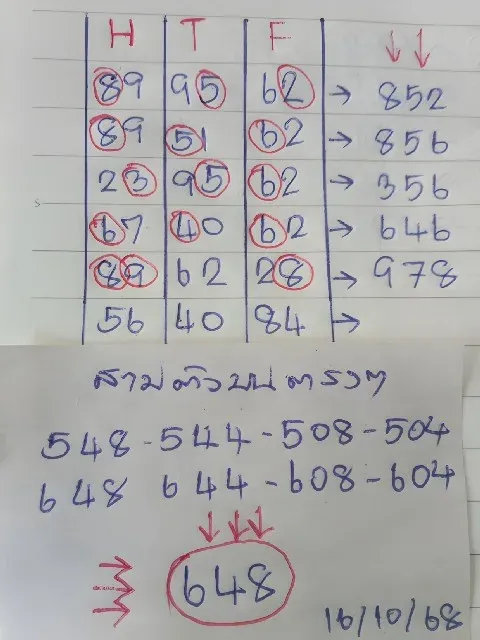 H T F
89 95 62 → 852
89 51 62 → 856
23 95 62 → 356
67 40 62 → 646
89 62 28 → 978
56 40 84 →
สามตัวบนตรงๆ
548 - 544 - 508 - 504
648 644 - 608 - 604
648
16/10/68